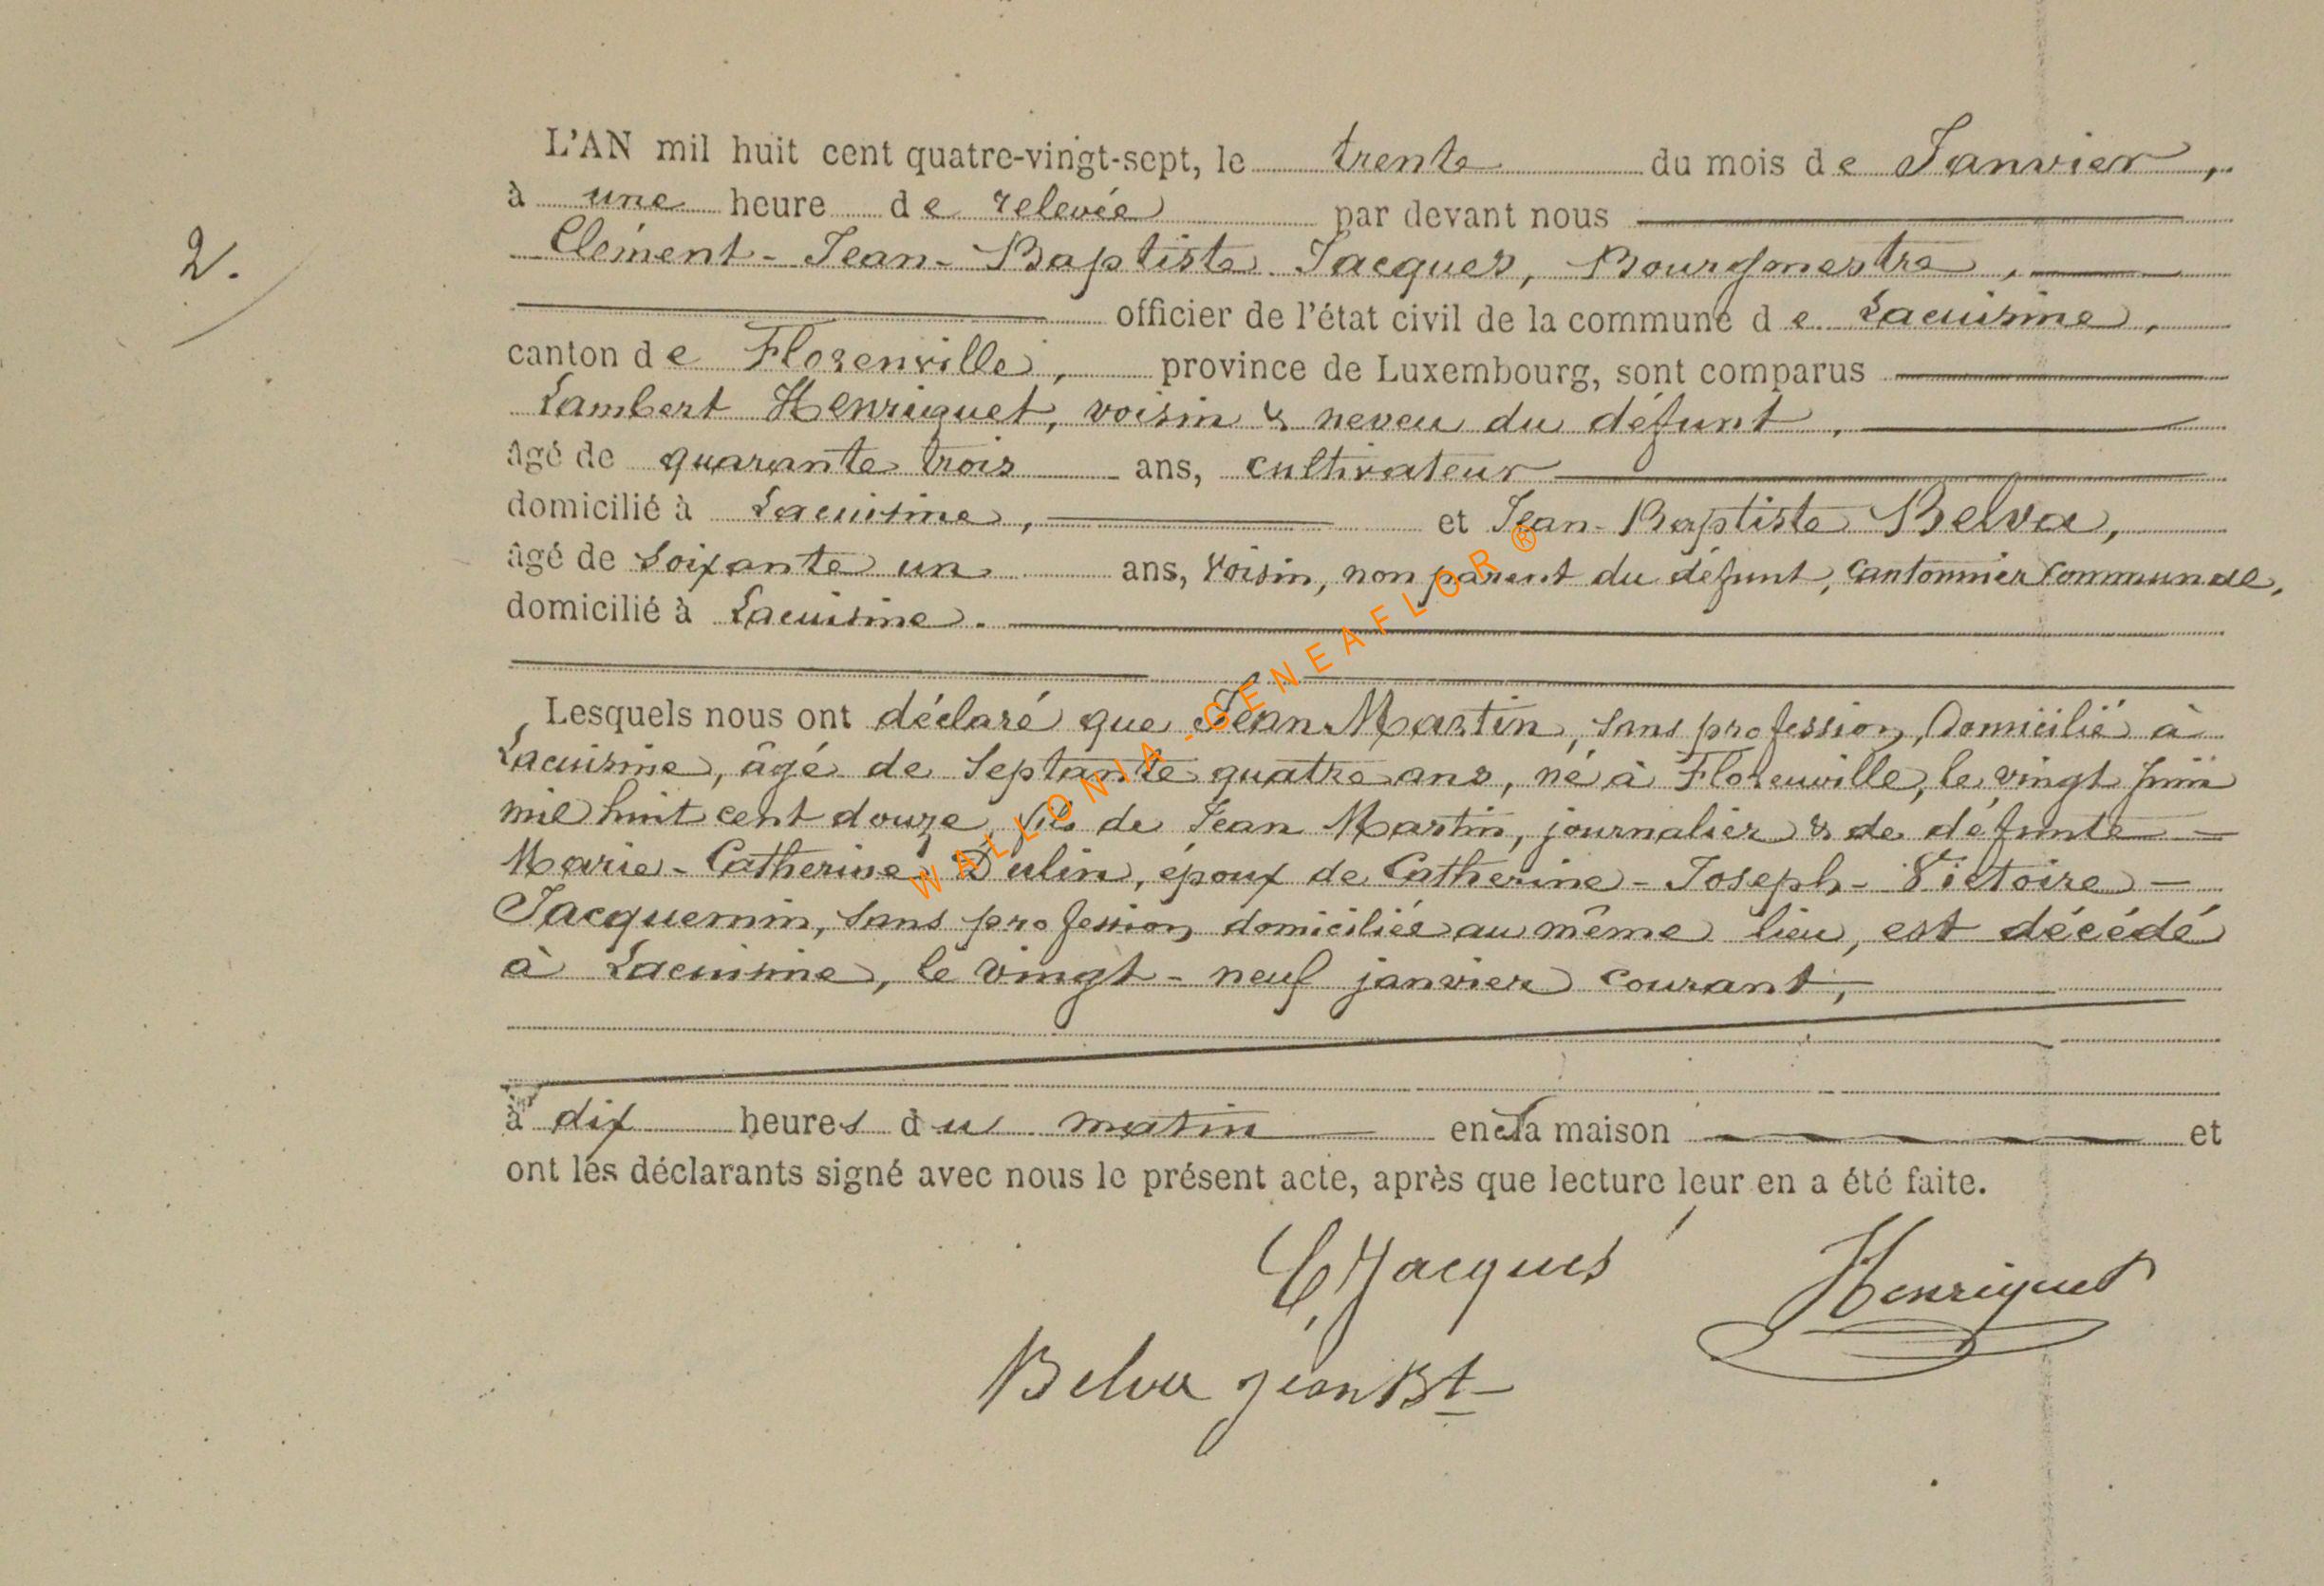 2.
L'AN mil huit cent quatre-vingt-sept, le trente du mois de Janvier,
à une heure de relevée par devant nous
Clément-Jean-Baptiste Jacques, Bourgmestre,
officier de l'état civil de la commune de Lacuisine,
canton de Florenville, province de Luxembourg, sont comparus
Lambert Henriquet, voisin & neveu du défunt,
âgé de quarante trois ans, cultivateur
domicilié à Lacuisine, et Jean-Baptiste Belva,
âgé de soixante un ans, voisin, non parent du défunt, cantonnier communal,
domicilié à Lacuisine.
Lesquels nous ont déclaré que Jean Martin, sans profession, domicilié à
Lacuisine, âgé de septante quatre ans, né à Florenville, le vingt juin
mil huit cent douze, fils de Jean Martin, journalier & de défunte
Marie-Catherine Dulin, époux de Catherine-Joseph-Victoire
Jacquemin, sans profession domiciliée au même lieu, est décédé
à Lacuisine, le vingt-neuf janvier courant,
à dix heures du matin en sa maison et
ont les déclarants signé avec nous le présent acte, après que lecture leur en a été faite.
C. Jacques
Henriquet
Belva jean Bt
WALLONIA-GENEAFLOR ®